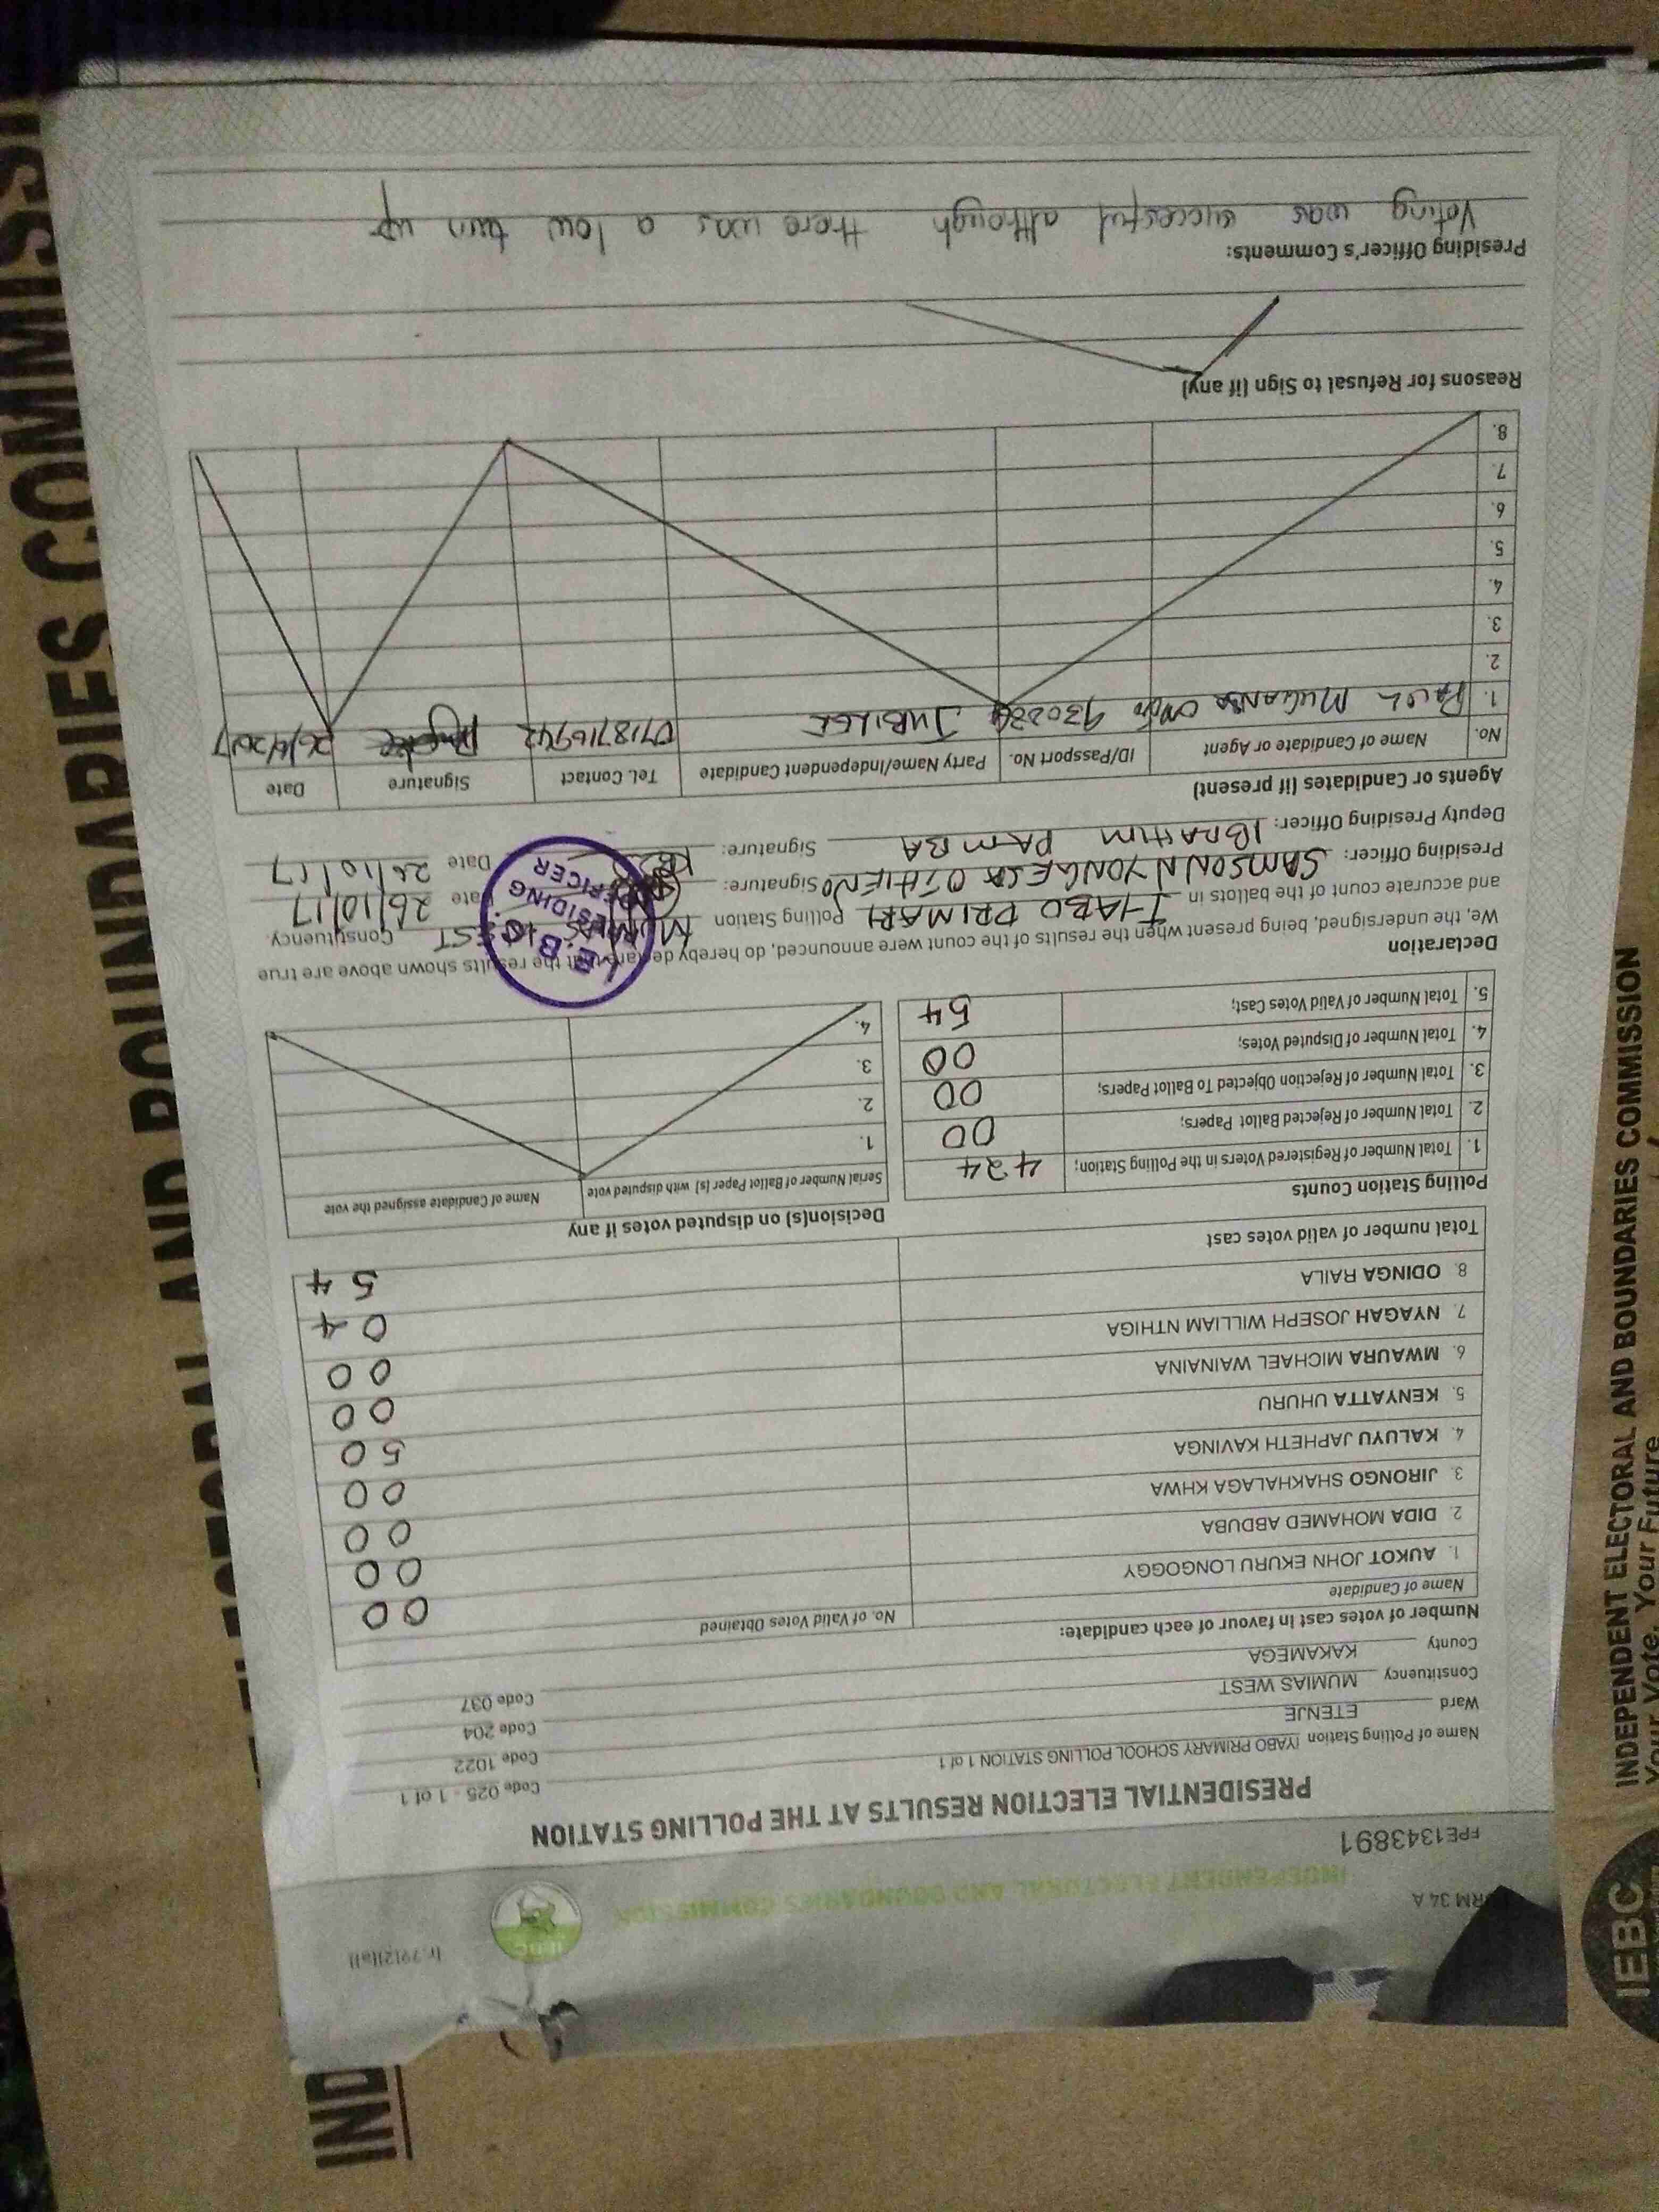 FORM 34 A
INDEPENDENT ELECTORAL AND BOUNDARIES COMMISSION
FPE1343891
PRESIDENTIAL ELECTION RESULTS AT THE POLLING STATION
Name of Polling Station IYABO PRIMARY SCHOOL POLLING STATION 1 of 1 Code 025 - 1 of 1
Ward ETENJE Code 1022
Constituency MUMIAS WEST Code 204
County KAKAMEGA Code 037
Number of votes cast in favour of each candidate:
Name of Candidate No. of Valid Votes Obtained
1. AUKOT JOHN EKURU LONGOGGY 00
2. DIDA MOHAMED ABDUBA 00
3. JIRONGO SHAKHALAGA KHWA 00
4. KALUYU JAPHETH KAVINGA 00
5. KENYATTA UHURU 50
6. MWAURA MICHAEL WAINAINA 00
7. NYAGAH JOSEPH WILLIAM NTHIGA 00
8. ODINGA RAILA 04
Total number of valid votes cast 54
Polling Station Counts
1. Total Number of Registered Voters in the Polling Station; 424
2. Total Number of Rejected Ballot Papers; 00
3. Total Number of Rejection Objected To Ballot Papers; 00
4. Total Number of Disputed Votes; 00
5. Total Number of Valid Votes Cast; 54
Decision(s) on disputed votes if any
Serial Number of Ballot Paper (s) with disputed vote Name of Candidate assigned the vote
1.
2.
3.
4.
Declaration
We, the undersigned, being present when the results of the count were announced, do hereby declare that the results shown above are true
and accurate count of the ballots in IYABO PRIMARY Polling Station MUMIAS WEST Constituency.
Presiding Officer: SAMSON NYONGESA OTHIENO Signature: Date 26/10/17
Deputy Presiding Officer: IBRAHIM PAMBA Signature: Date 26/10/17
I.E.B.C.
PRESIDING
OFFICER
Agents or Candidates (if present)
No. Name of Candidate or Agent ID/Passport No. Party Name/Independent Candidate Tel. Contact Signature Date
1. MUGANDA JUBILEE 0718716942
2.
3.
4.
5.
6.
7.
8.
Reasons for Refusal to Sign (if any)
Presiding Officer's Comments:
Voting was succesful although there was a low turn up
INDEPENDENT ELECTORAL AND BOUNDARIES COMMISSION
Your Vote, Your Future
IEBC
IND
ELECTORAL AND BOUNDARIES COMMISSI